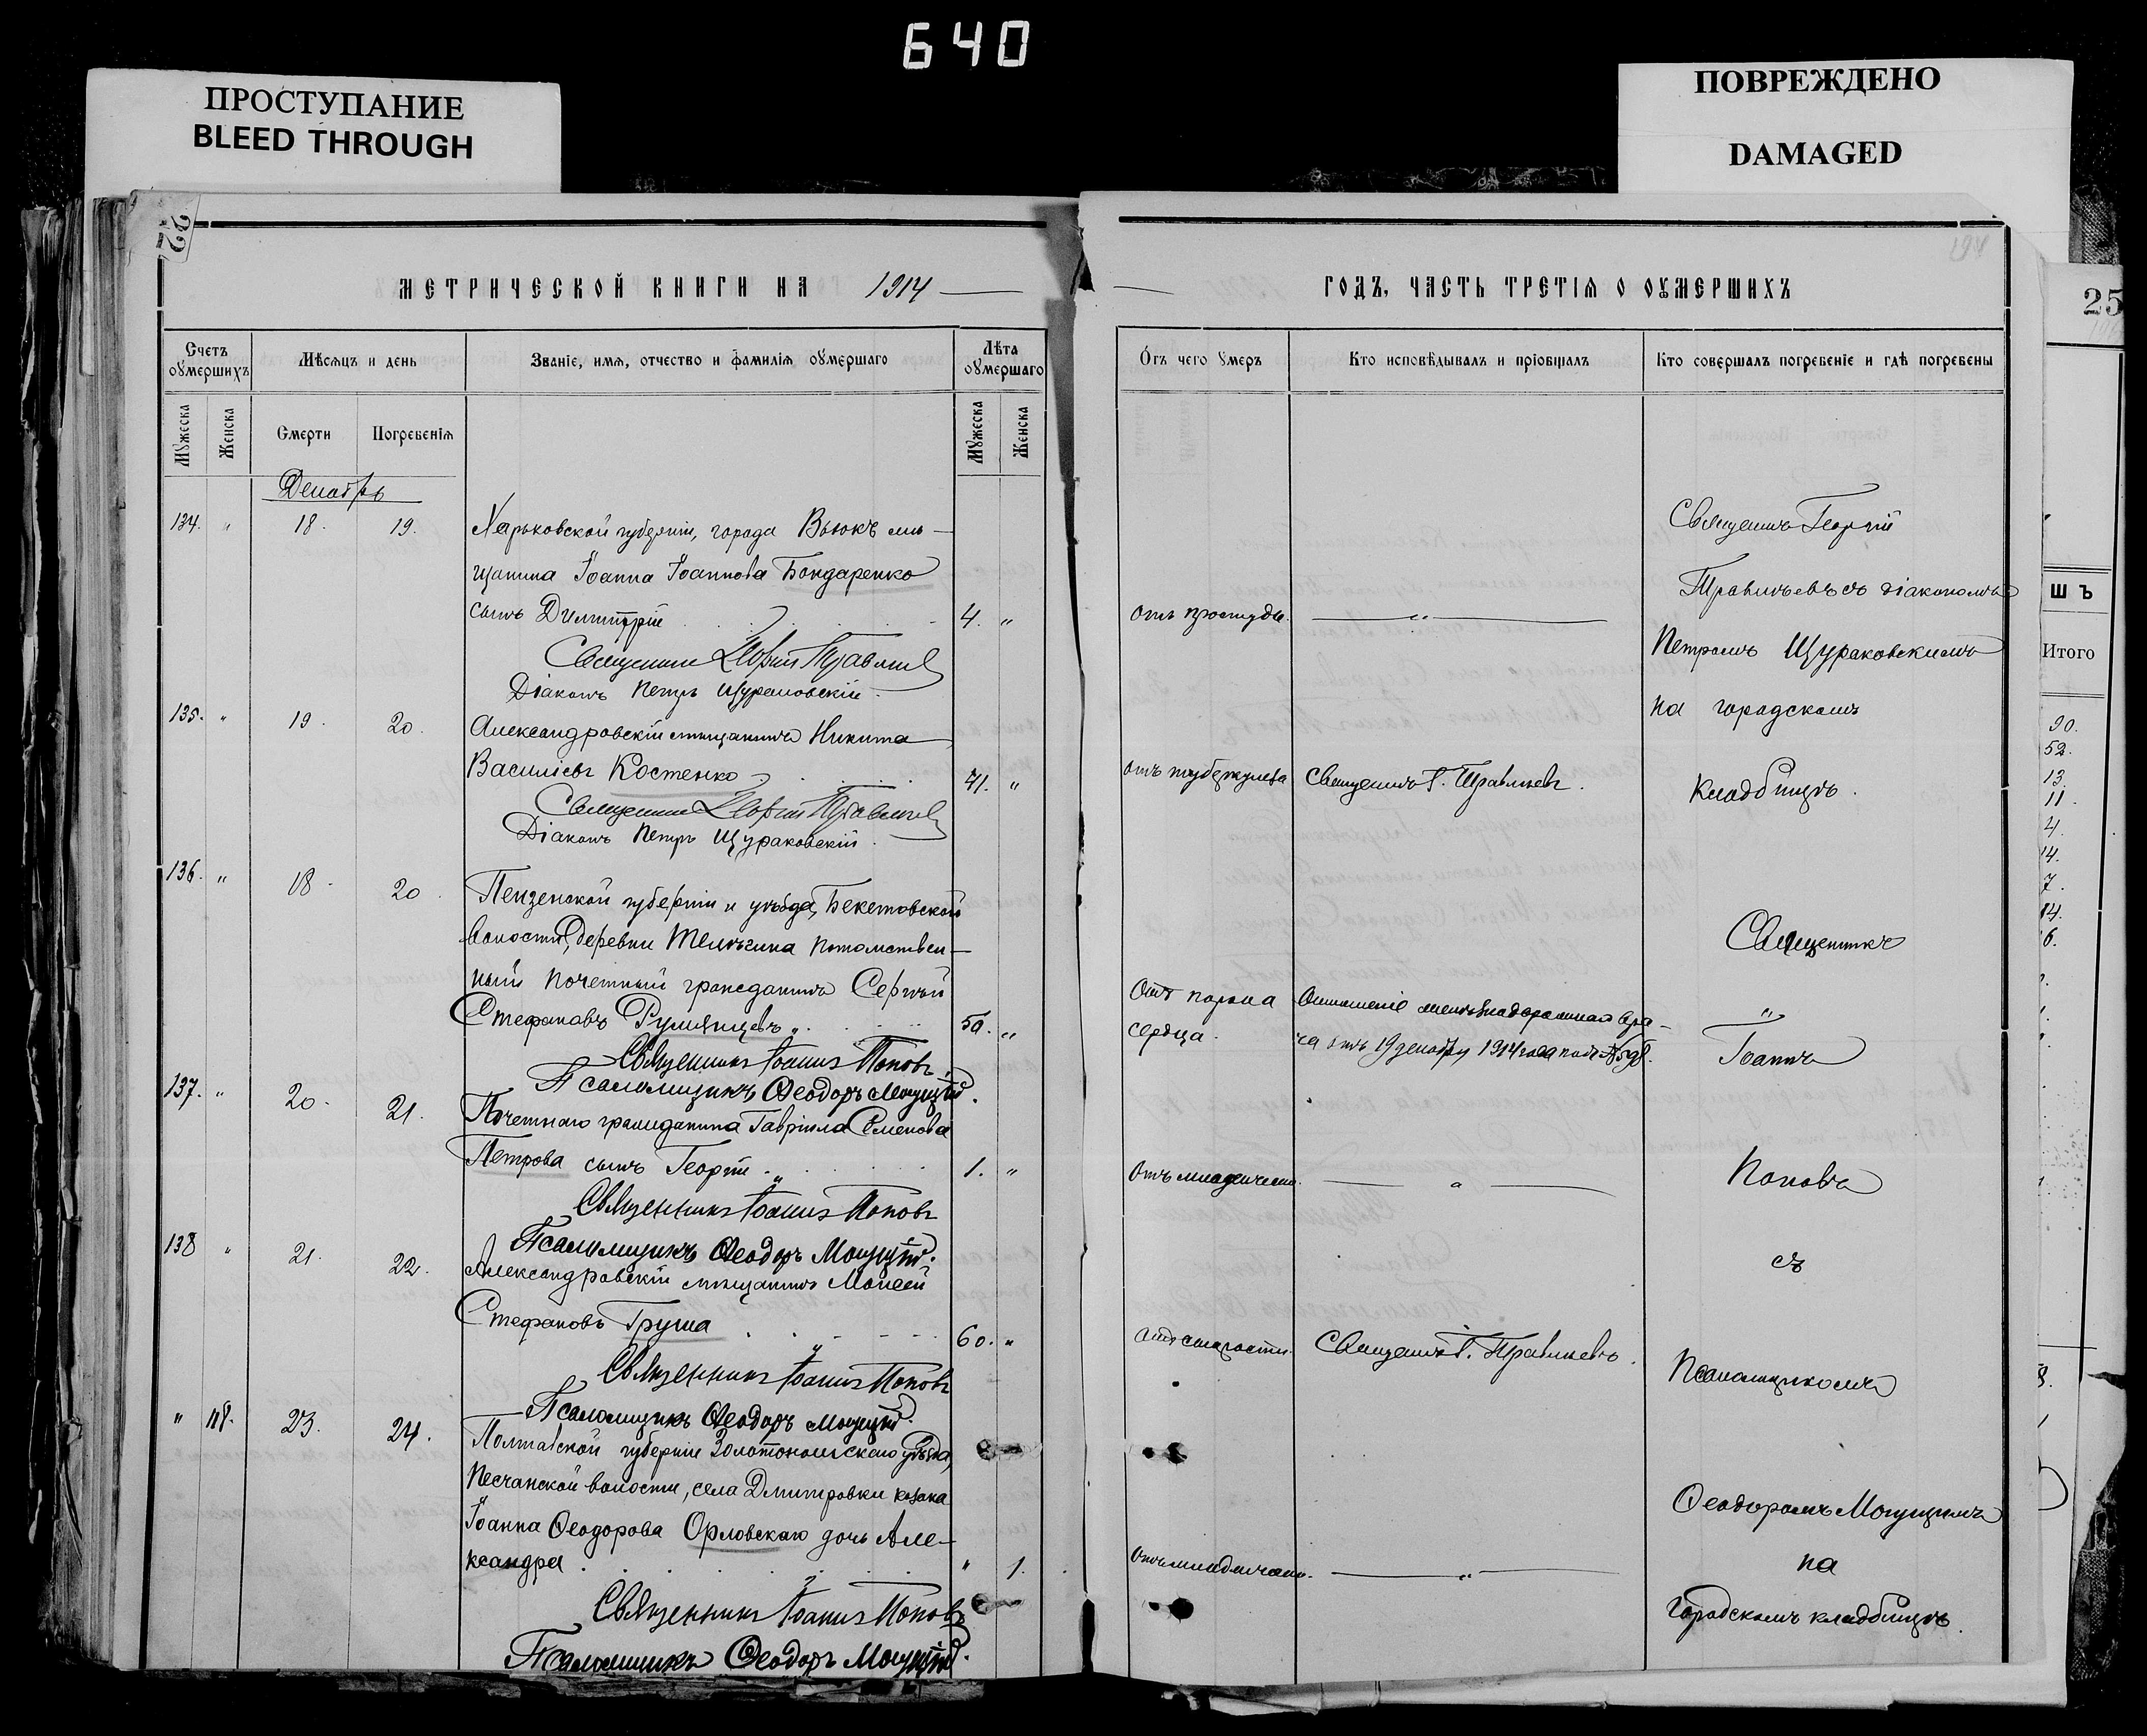 640
ПРОСТУПАНИЕ
BLEED THROUGH
ПОВРЕЖДЕНО
DAMAGED
22
194
25
МЕТРИЧЕСКОЙ КНИГИ НА 1914
Счетъ оумершихъ
Мѣсяцъ и день
Званіе, имя, отчество и фамилія оумершаго
Лѣта оумершаго
Мужеска
Женска
Смерти
Погребенія
Мужеска
Женска
Декабрь
134. " 18. 19. Харьковской губерніи, города мѣ-
щанина Іоанна Іоаннова Бондаренко
сынъ Димитрій 4. "
Священникъ Георгій
Діаконъ Петръ Щураковскій.
135. " 19. 20. Александровскій мѣщанинъ Никита
Василіевъ Костенко 41. "
Священникъ Георгій
Діаконъ Петръ Щураковскій.
136. " 18. 20. Пензенской губерніи и уѣзда, Бекетовской
волости, деревни потомствен-
ный почетный гражданинъ Сергѣй
Стефановъ Румянцевъ 50. "
Священникъ Іоаннъ Поповъ
Псаломщикъ Ѳеодоръ Могущій.
137. " 20. 21. Почетнаго гражданина Гавріила Семенова
Петрова сынъ Георгій 1. "
Священникъ Іоаннъ Поповъ
Псаломщикъ Ѳеодоръ Могущій.
138 " 21. 22. Александровскій мѣщанинъ Моисей
Стефановъ Груша 60. "
Священникъ Іоаннъ Поповъ
Псаломщикъ Ѳеодоръ Могущій.
" 118. 23. 24. Полтавской губерніи Золотоношскаго уѣзда,
Песчанской волости, села Дмитровки козака
Іоанна Ѳеодорова Орловскаго дочь Але-
ксандра " 1.
Священникъ Іоаннъ Поповъ
Псаломщикъ Ѳеодоръ Могущій.
ГОДЪ, ЧАСТЬ ТРЕТІЯ О ОУМЕРШИХЪ
Отъ чего умеръ
Кто исповѣдывалъ и пріобщалъ
Кто совершалъ погребеніе и гдѣ погребены
Священникъ Георгій
съ діакономъ
отъ простуды. "
Петромъ Щураковскимъ
на городскомъ
отъ туберкулеза Священникъ Г.
кладбищѣ.
Священникъ
Отъ порока
сердца.
Отношеніе
ча отъ 19 декабря 1914 года
"
Іоаннъ
Отъ младенческ. "
Поповъ
съ
отъ старости. Священникъ Г.
Псаломщикомъ
Ѳеодоромъ Могущимъ
отъ младенческ. "
на
городскомъ кладбищѣ.
ШЪ
Итого
90.
52.
13.
11.
4.
14.
7.
14.
6.